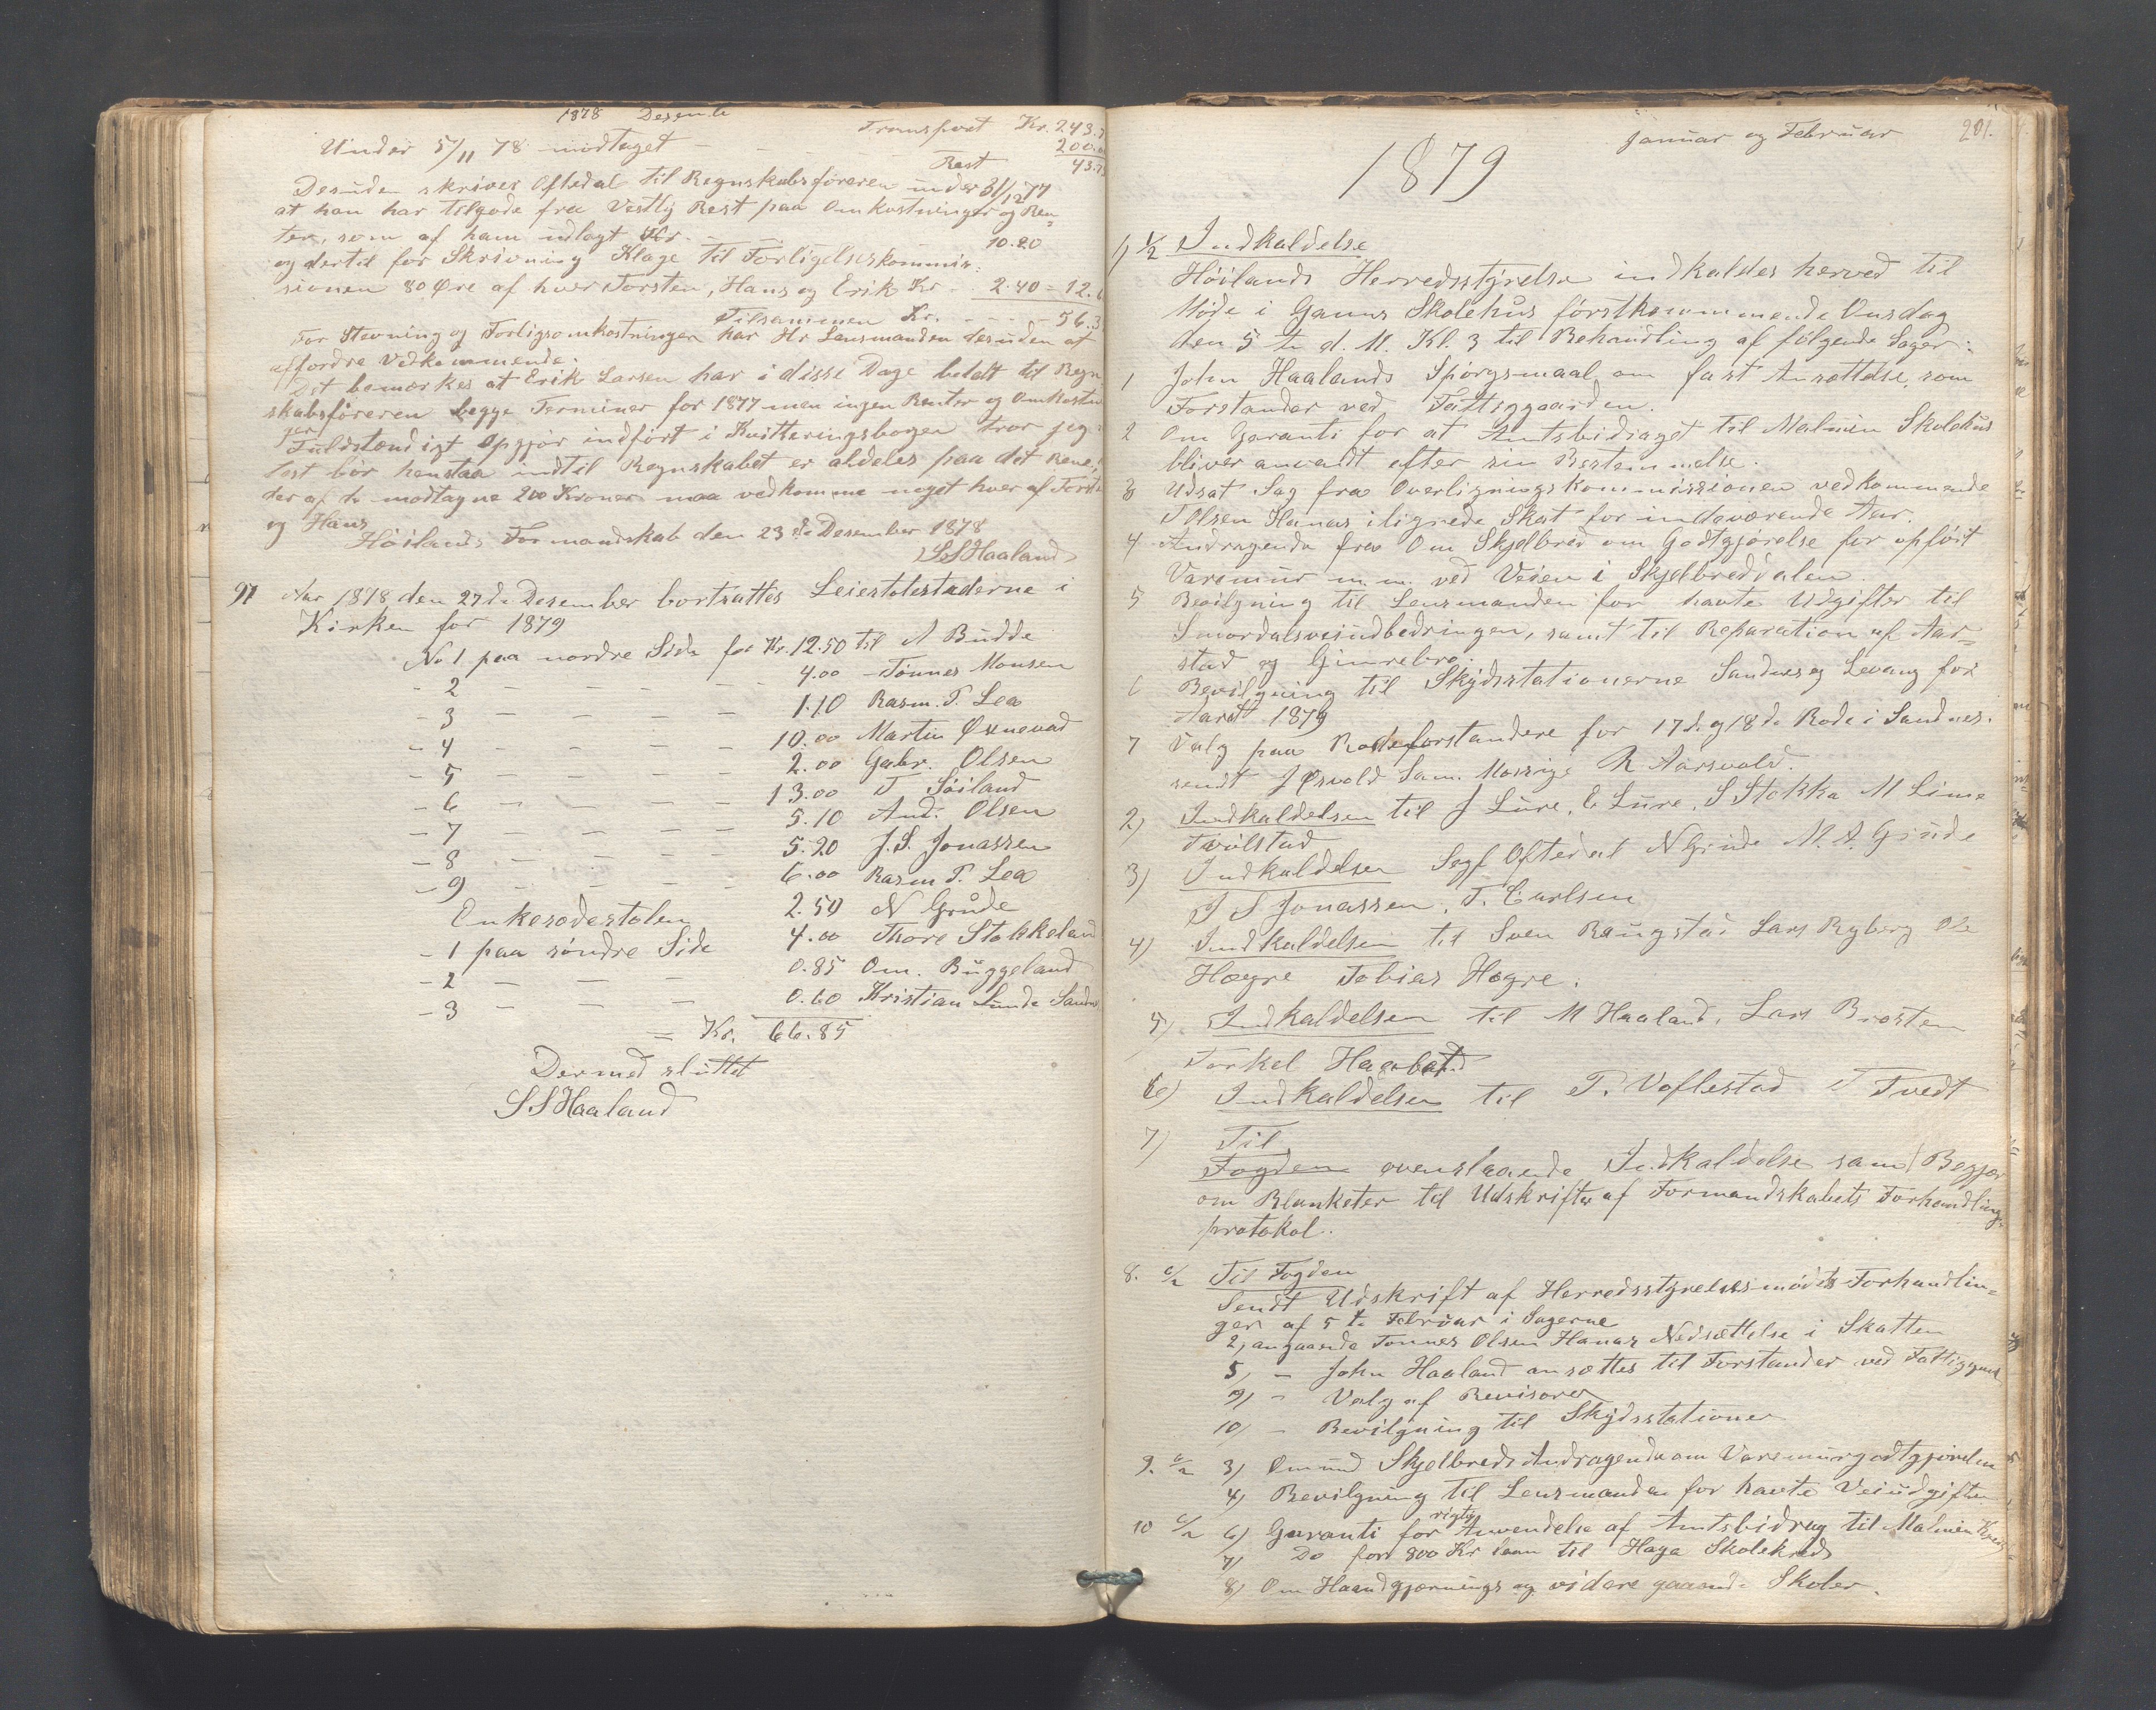 1878 Desembe
Transport Kr. 243.
Under 5/11 78 modtaget - - - 200.
Rest 43.
Desuden skriver Oftedal til Regnskabsföreren under 31/12 77
at han har tilgode fra Vestly Rest paa Omkostninger og Ren=
ter, som af ham udlagt Kr. - - 10.20
og dertil for Skrivning Klage til Forligelseskommis:
sionen 80 Øre af hver Torsten, Hans og Erik Kr - 2.40 = 12.6
Tilsammen Kr. - - - 56.3
For Stevning og Forligsomkostninger har Hr Lensmanden desuden at
affordre Vedkommende.
Det bemærkes at Erik Larsen har i disse Dage betalt til Regn
skabsföreren begge Terminer for 1877 men ingen Renter og Omkostnin
ger
Fuldstændigt Opgjör indfört i Kvitteringsbogen tror jeg
bør henstaa indtil Regnskabet er aldeles paa det Rene,
der af de modtagne 200 Kroner maa vedkomme noget hver af Torste
og Hans
Höilands Formandskab den 23de Desember 1878
S S Haaland
97 Aar 1878 den 27de Desember bortsattes Leiestolestaderne i
Kirken for 1879
No 1 paa nordre Side for Kr. 12.50 til A Budde
- 2 - - - - - 4.00 - Tönnes Monsen
- 3 - - - - - 1.10 Rasm. T. Lea
- 4 - - - - - 10.00 Martin Øxnevad
- 5 - - - - - 2.00 Gabr. Olsen
- 6 - - - - - 13.00 T Söiland
- 7 - - - - - 5.10 And. Olsen
- 8 - - - - - 5.20 J. S. Jonassen
- 9 - - - - - 6.00 Rasm T. Lea
Enkesædestolen 2.50 N Grude
- 1 paa söndre Side 4.00 Thore Stokkeland
- 2 - - - 0.85 Om. Buggeland
- 3 - - - 0.60 Kristian Lunde Sandn
= Kr. 66.85
Dermed sluttet
S S Haaland
Januar og Februar 201.
1879
1) 1/2 Indkaldelse
Höilands Herredsstyrelse indkaldes herved til
Möde i Ganns Skolehus förstkommmende Onsdag
den 5te d. M. Kl. 3 til Behandling af fölgende Sager:
1 John Haalands Spörgsmaal om fast Ansættelse, som
Forstander ved Fattiggaarden.
2 Om Garanti for at Amtsbidraget til Malmin Skolehus
bliver anvendt efter sin Bestemmelse.
3 Udsat Sag fra Overligningskommissionen vedkommende
T Olsen Hanas ilignede Skat for indeværende Aar.
4 Andragende fra Om Skjelbred om Godtgjörelse for opfört
Varemur m.m. ved Veien i Skjelbreddalen.
5 Bevilgning til Lensmanden for havte Udgifter til
veiudbedringen, samt til Reparation af Aar=
stad og Gimrebro.
6 Bevilgning til Skydsstationerne Sandnes og Levang for
Aaret 1879
7 Valg paa Rodeforstandere for 17de og 18de Rode i Sandnes.
sendt J Øsvold Sam. Mossige R Aarsvold.
2) Indkaldelsen til J Lure, E Lure, S Stokka M Lima
Tvilstad
3) Indkaldelsen Oftedal N Grude M. A. Grude
J S Jonassen, T. Carlsen
4) Indkaldelsen til Sven Raugstad Lars Ryberg Ole
Hægre Tobias Hægre.
5) Indkaldelsen til M Haaland, Lars Brosten
Torkel Haabet
6) Indkaldelsen til T. Voflestad T Tvedt
7) Til
Fogden ovenstaaende Indkaldelse samt Begjær
om Blanketer til Udskrifter af Formandskabets Forhandlings
protokol.
8. 6/2 Til Fogden
Sendt Udskrift af Herredsstyrelsesmödets Forhandlin=
ger af 5te Februar i Sagerne
2, angaaende Tönnes Olsen Hanas Nedsættelse i Skatten
5, - John Haaland ansættes til Forstander ved Fattiggaard
9, - Valg af Revisorer
10, - Bevilgning til Skydsstationer
9. 6/2 3) Omund Skjelbreds Andragende om Varemurgodtgjörelse
4, Bevilgning til Lensmanden for havte Veiudgifter
10 6/2 6) Garanti for rigtig Anvendelse af Amtsbidrag til Malmin Kreds
7) Do for 800 Kr Laan til Hana Skolekreds
8) Om Haandgjernings og videre gaaende Skoler.